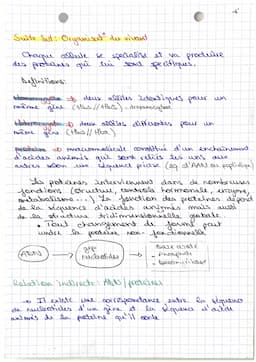 Suite Sed : Organisat° du vivant
Chaque cellule se spécialise et va produire
des protéines qui lui sont spécifiques.
Définitions:
Homozygote → deux allèles identiques pour un
même gène (HbS // HbS)
Hétérozygote → deux allèles différents pour un
même gène (HbS // HbA)
protéine → macromolécule constitué d'un enchainement
d'acides aminés qui sont reliés les uns aux
autres selon une séquence précise
Les protéines interviennent dans de nombreuses
fonctions (structure, contrôle hormonale, enzyme,
métabolisme...) La fonction des protéines dépend
de la séquence d'acides aminés mais aussi
de la structure tridimensionnelle globale.
• Tout changement de forme peut
rendre la protéine non-fonctionnelle
ADN
gène
nucléotides
- Base azoté
- phosphate
- desoxyribose
Relation indirect: ADN / protéines
→ Il existe une correspondance entre la séquence
de nucléotides d'un gène et la séquence d'acide
aminés de la protéine qu'il code